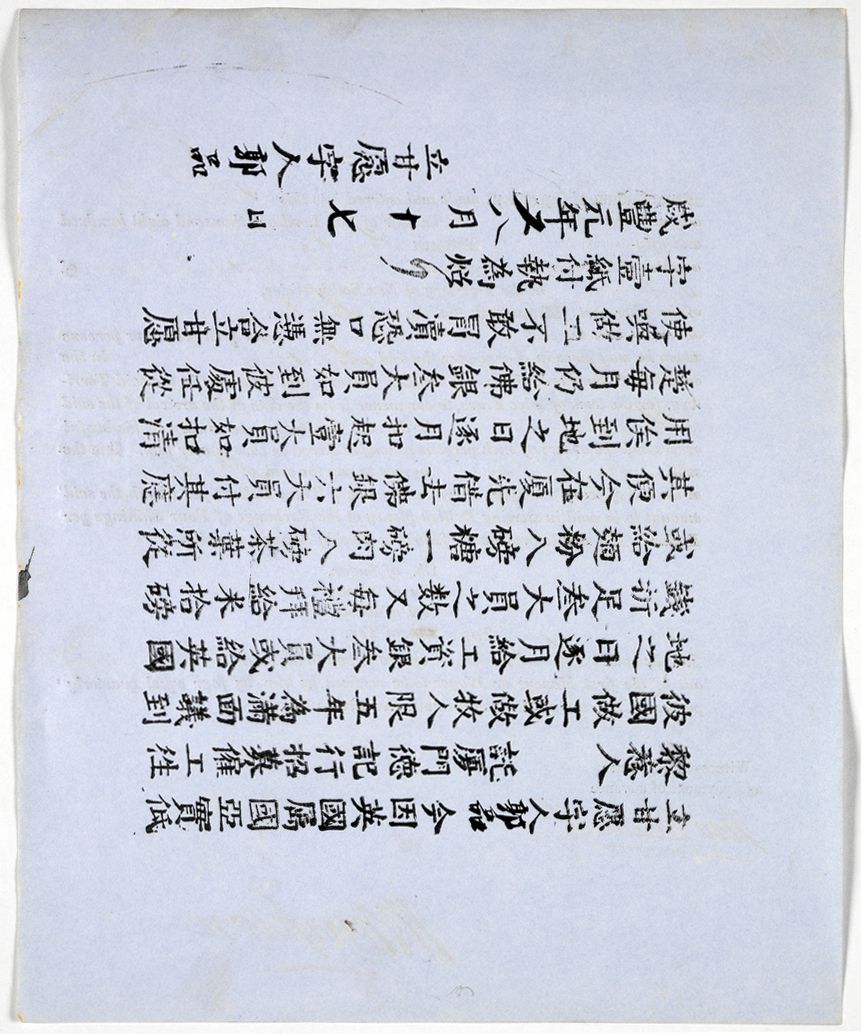 立甘愿字人郭品今因英國屬國亞實低
黎愙人 託厦門德記行招募催工往
彼國做工或做牧人限五年為滿面議到
地之日逐月給工資銀叁大員或給英國
錢泝足叁大員之数又每禮拜給米拾磅
或給麵粉八磅糖一磅肉八磅茶葉所從
其便今在厦先借去佛銀六大員付其應
用俟到地之日逐月扣起壹大員如扣清
楚每月仍給佛銀叁大員如到彼處任從
使喚做工不敢冒瀆恐口無憑合立甘愿
字壹紙付執為炤
咸豐元年又八月十七日
立甘愿字人郭品